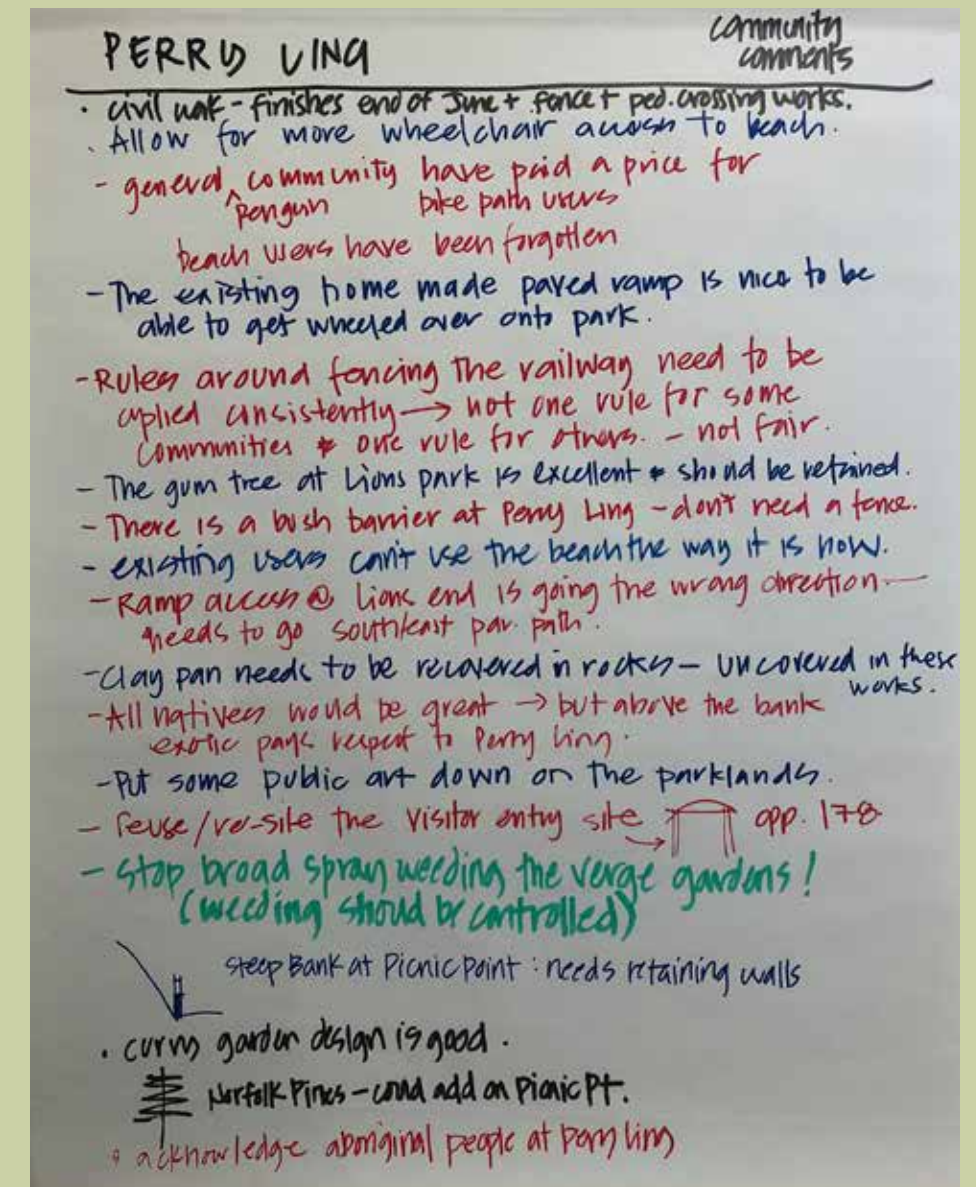 PERRY LING
community
comments
· civil work - finishes end of June + fence + ped. crossing works.
· Allow for more wheelchair access to beach.
- general community have paid a price for
^ Penguin bike path users
beach users have been forgotten
- The existing home made paved ramp is nice to be
able to get wheeled over onto park.
- Rules around fencing the railway need to be
applied consistently → not one rule for some
communities & one rule for others. - not fair.
- The gum tree at Lions park is excellent & should be retained.
- There is a bush barrier at Perry Ling - don't need a fence.
- existing users can't use the beach the way it is now.
- Ramp access @ Lions end is going the wrong direction -
needs to go south/east par. path.
- Clay pan needs to be recovered in rocks - uncovered in these
works.
- All natives would be great → but above the bank
exotic pays respect to Perry Ling.
- Put some public art down on the parklands.
- Reuse/re-site the visitor entry site → opp. 178
- Stop broad spray weeding the verge gardens!
(weeding should be controlled)
steep Bank at Picnic Point : needs retaining walls
· curvy garden design is good.
Norfolk Pines - could add on Picnic Pt.
· acknowledge aboriginal people at perry ling